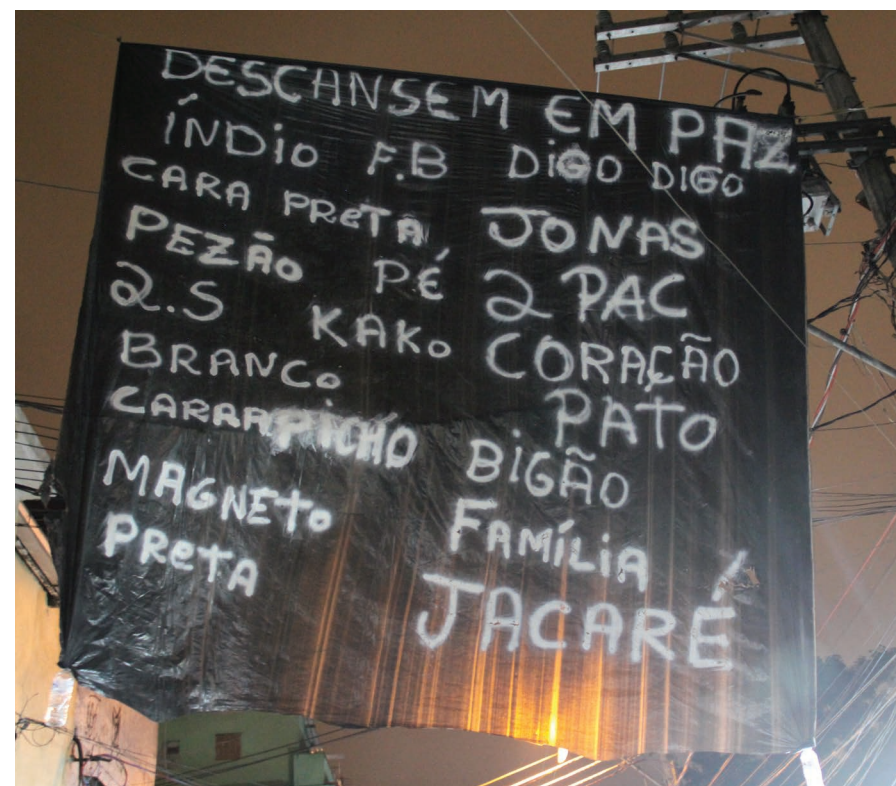 DESCANSEM EM PAZ
ÍNDIO F.B DIGO DIGO
CARA PRETA JONAS
PEZÃO PÉ 2 PAC
2.S KAKO CORAÇÃO
BRANCO PATO
CARRAPICHO BIGÃO
MAGNETO FAMÍLIA
PRETA JACARÉ